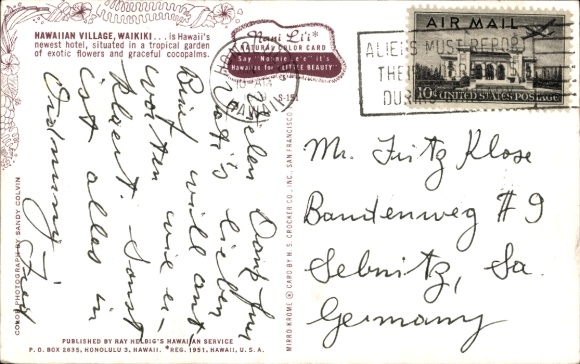 HAWAIIAN VILLAGE, WAIKIKI... is Hawaii's
newest hotel, situated in a tropical garden
of exotic flowers and graceful cocopalms.
Nani Li'i*
NATURAL COLOR CARD
Say "Nonnie Lee" it's
Hawaiian for "LITTLE BEAUTY"
AIR MAIL
ALIENS MUST REPORT
THE
DU
10¢ UNITED STATES POSTAGE
HAWAII
S-151
Vielen Dank für
Vati's lieben
Brief will ant-
worten wie er-
klaert. Sonst
ist alles in
Ordnung!
Mr. Fritz Klose
Bandenweg #9
Sebnitz, Sa.
Germany
COLOR PHOTOGRAPH BY SANDY COLVIN
MIRRO KROME ® CARD BY H. S. CROCKER CO., INC., SAN FRANCISCO
PUBLISHED BY RAY HELBIG'S HAWAIIAN SERVICE
P. O. BOX 2835, HONOLULU 3, HAWAII. *REG. 1951, HAWAII, U.S.A.